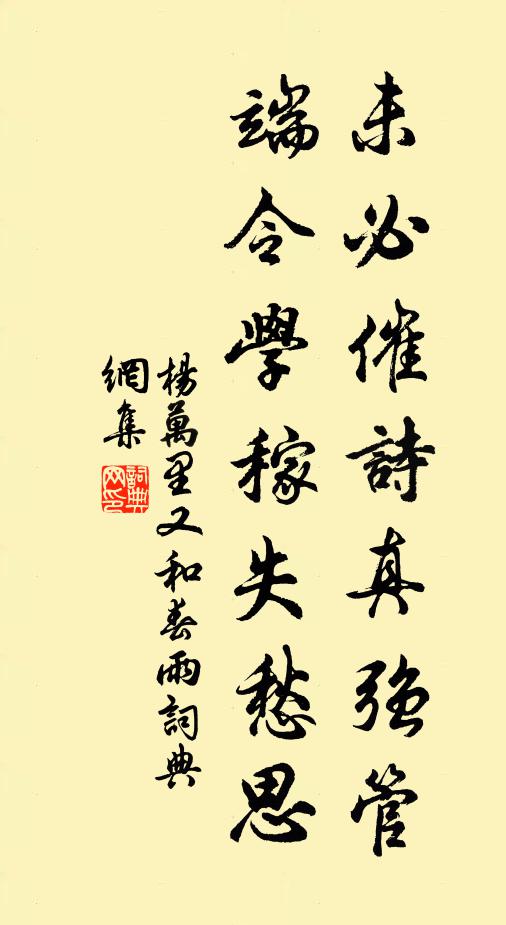 未必催詩真強管
端令學稼失愁思
楊萬里又和春雨詞典
網集
詞典
网印